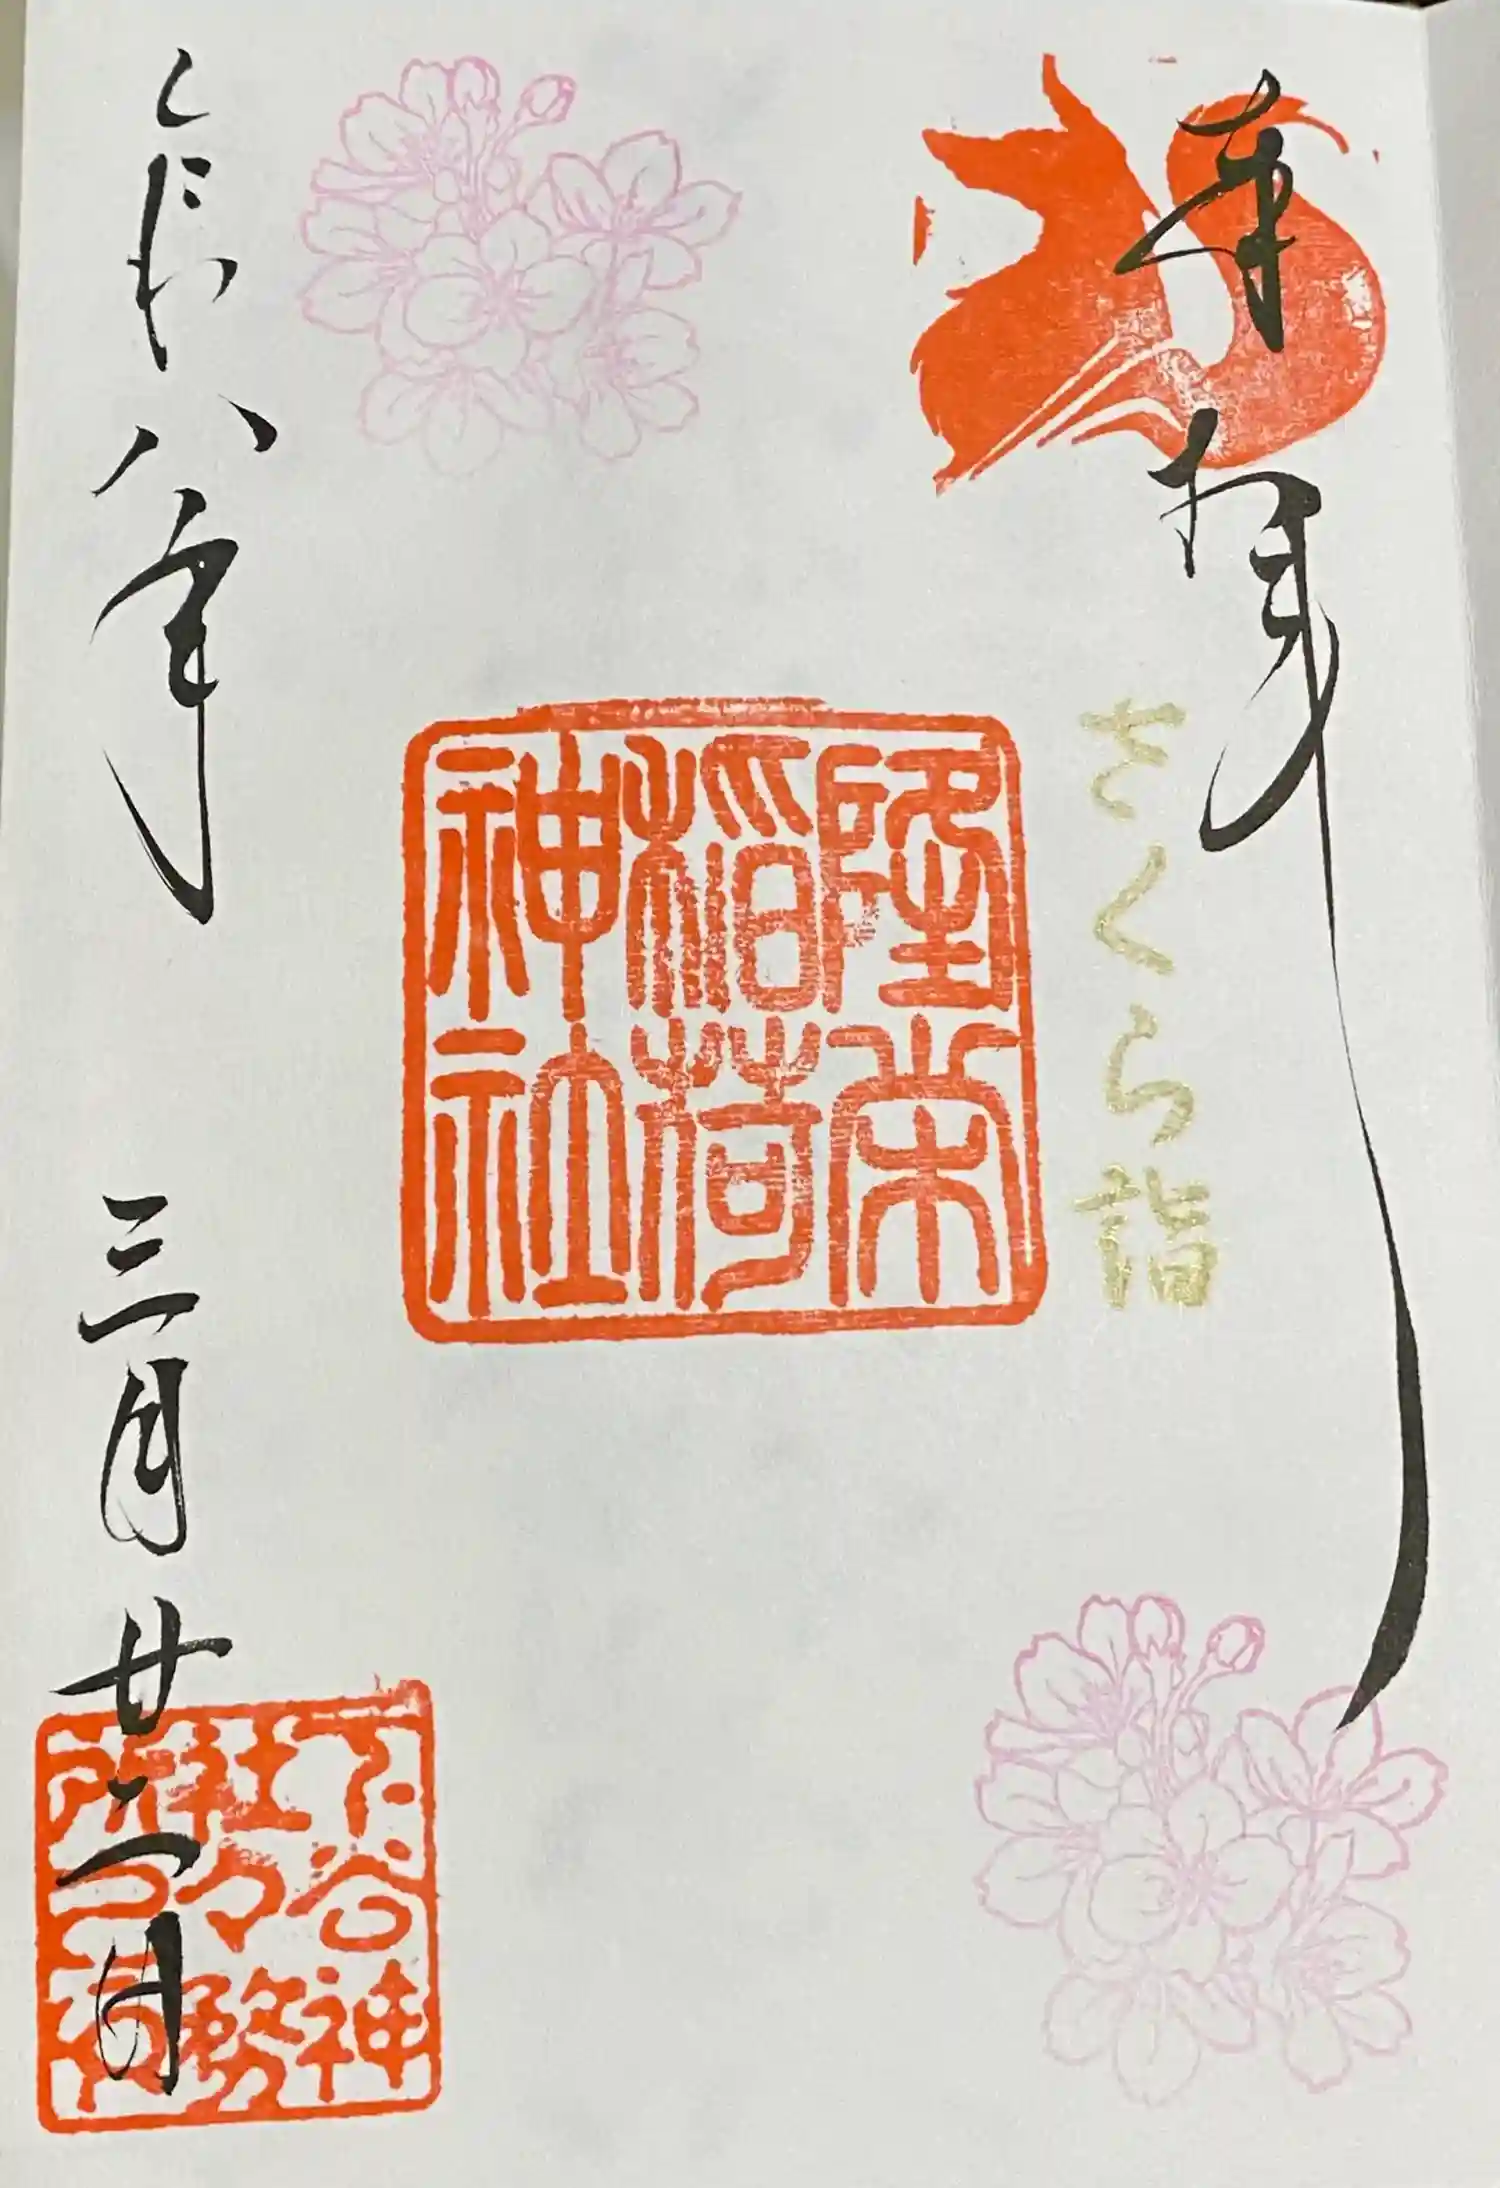 奉拝
さくら詣
隆栄
稲荷
神社
令和八年 三月廿二日
下谷神
社々務
所